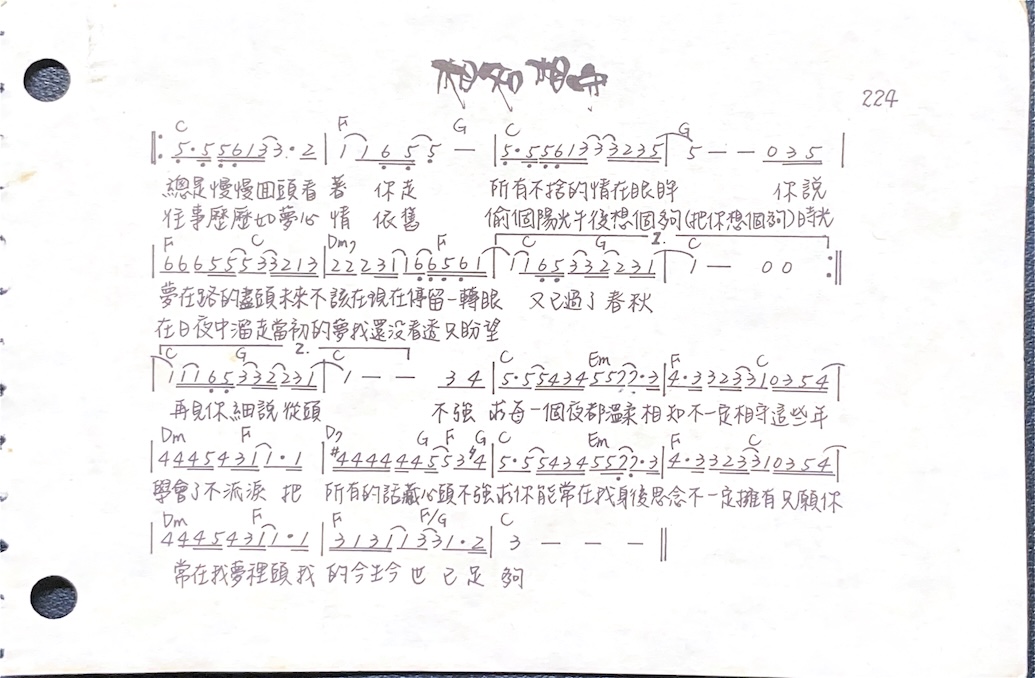 相知相守
224
C F G C G
5·556133·2 | 1 1 6 5 5 — | 5·55613333235 | 5 — — 0 3 5 |
總是慢慢回頭看著 你走 所有不捨的情在眼眸 你說
往事歷歷如夢心情 依舊 偷個陽光午後想個夠(把你想個夠)時光
1.
F C Dm7 F C G C
66655533213 | 22231166561 | 1165332231 | 1 — 0 0 :||
夢在路的盡頭未來不該在現在停留一轉眼 又已過了春秋
在日夜中溜走當初的夢我還没看透只盼望
2.
C G C C Em F C
11165332231 | 1 — — 3 4 | 5·554345577·3 | 4·3323310354
再見你細說從頭 不強 求每一個夜都溫柔相知不一定相守這些年
Dm F D7 G F G C Em F C
44454311·1 | #44444455 3#4 | 5·554345577·3 | 4·3323310354
學會了不流淚 把 所有的話藏心頭不強求你能常在我身後思念不一定擁有只願你
Dm F F F/G C
44454311·1 | 31311331·2 | 3 — — — ||
常在我夢裡頭我 的今生今世已足夠